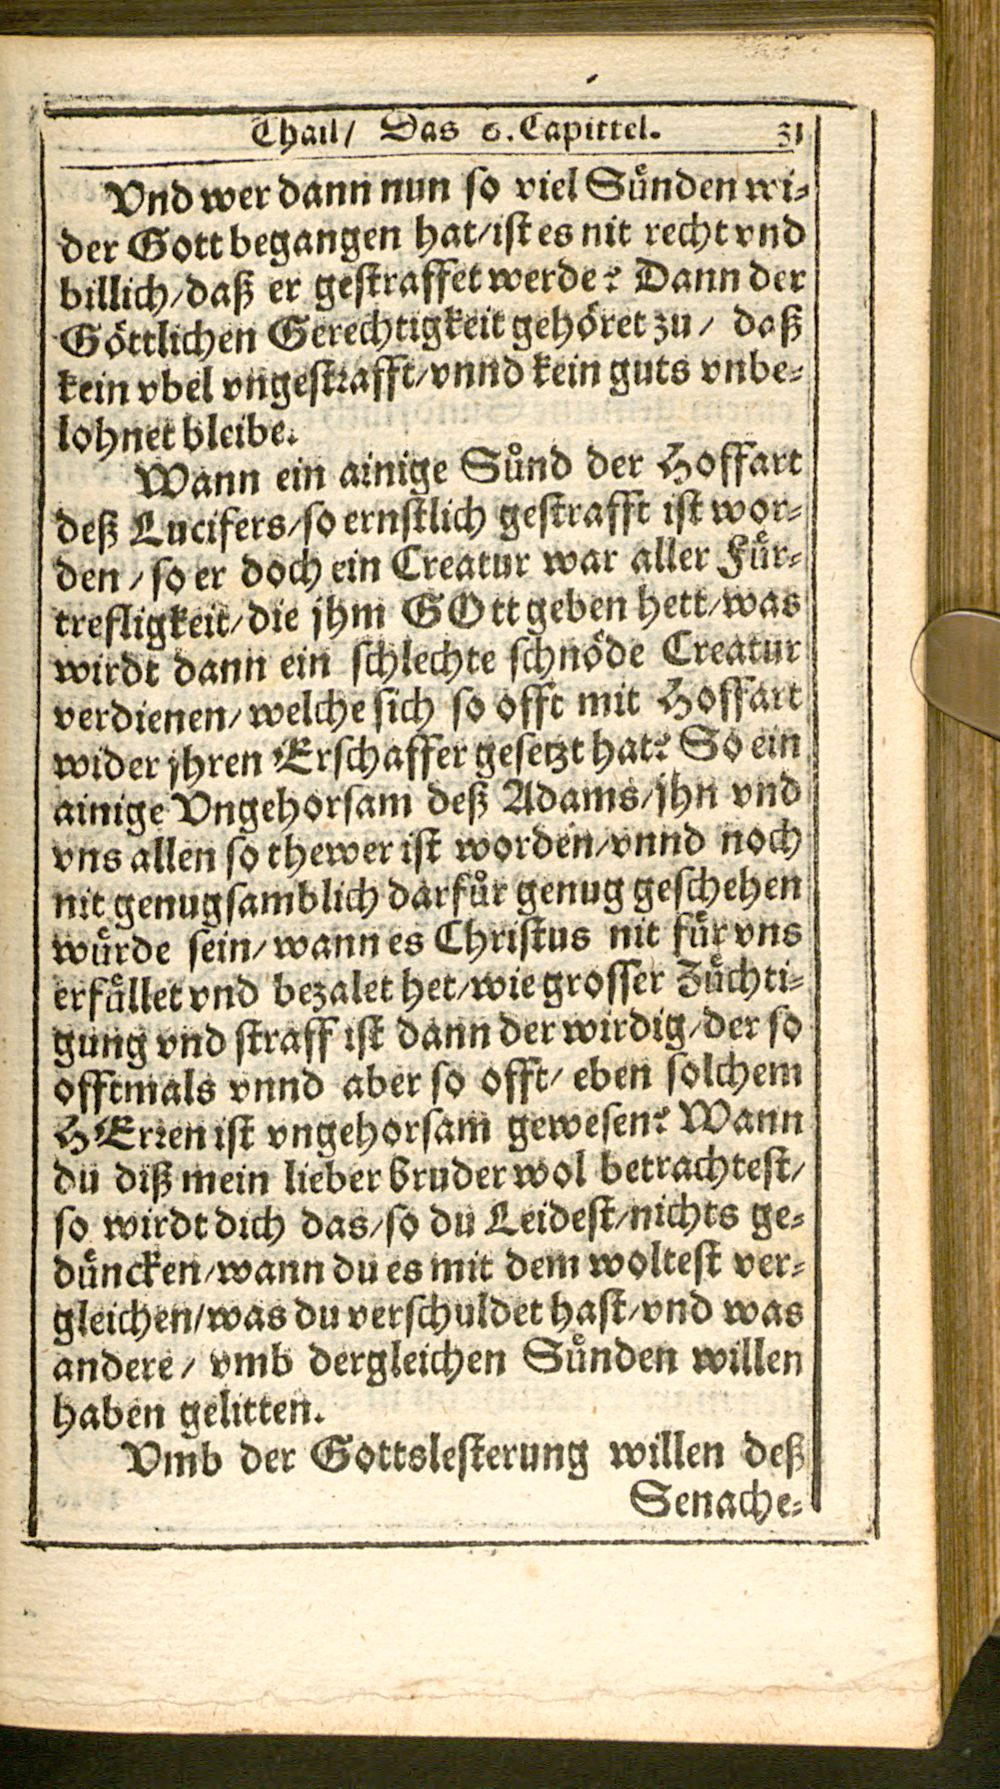 Thail/ Das 6. Capittel. 31
Vnd wer dann nun so viel Sůnden wi-
der Gott begangen hat/ist es nit recht vnd
billich/daß er gestraffet werde? Dann der
Göttlichen Gerechtigkeit gehöret zu/ daß
kein vbel vngestrafft/vnnd kein guts vnbe-
lohnet bleibe.
Wann ein ainige Sůnd der Hoffart
deß Lucifers/so ernstlich gestrafft ist wor-
den/so er doch ein Creatur war aller Fůr-
trefligkeit/die jhm GOtt geben hett/was
wirdt dann ein schlechte schnöde Creatur
verdienen/welche sich so offt mit Hoffart
wider jhren Erschaffer gesetzt hat? So ein
ainige Vngehorsam deß Adams/jhn vnd
vns allen so thewer ist worden/vnnd noch
nit genugsamblich darfůr genug geschehen
wůrde sein/wann es Christus nit fůr vns
erfůllet vnd bezalet het/wie grosser Zůchti-
gung vnd straff ist dann der wirdig/der so
offtmals vnnd aber so offt/ eben solchem
HErren ist vngehorsam gewesen? Wann
du diß mein lieber bruder wol betrachtest/
so wirdt dich das/so du Leidest/nichts ge-
důncken/wann du es mit dem woltest ver-
gleichen/was du verschuldet hast/vnd was
andere/ vmb dergleichen Sůnden willen
haben gelitten.
Vmb der Gottslesterung willen deß
Senache-